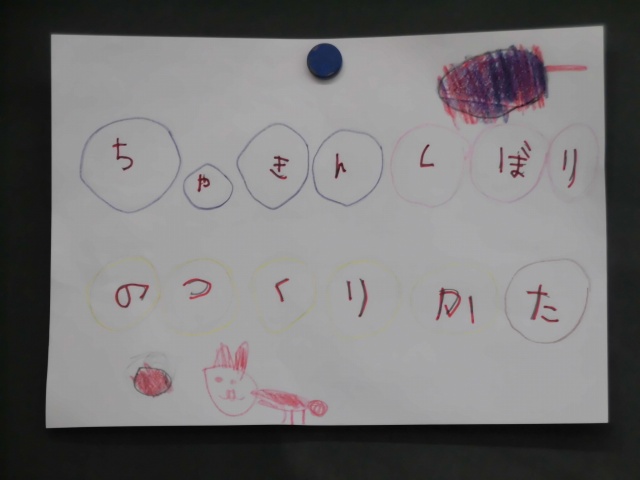 ちゃきんしぼり
のつくりかた